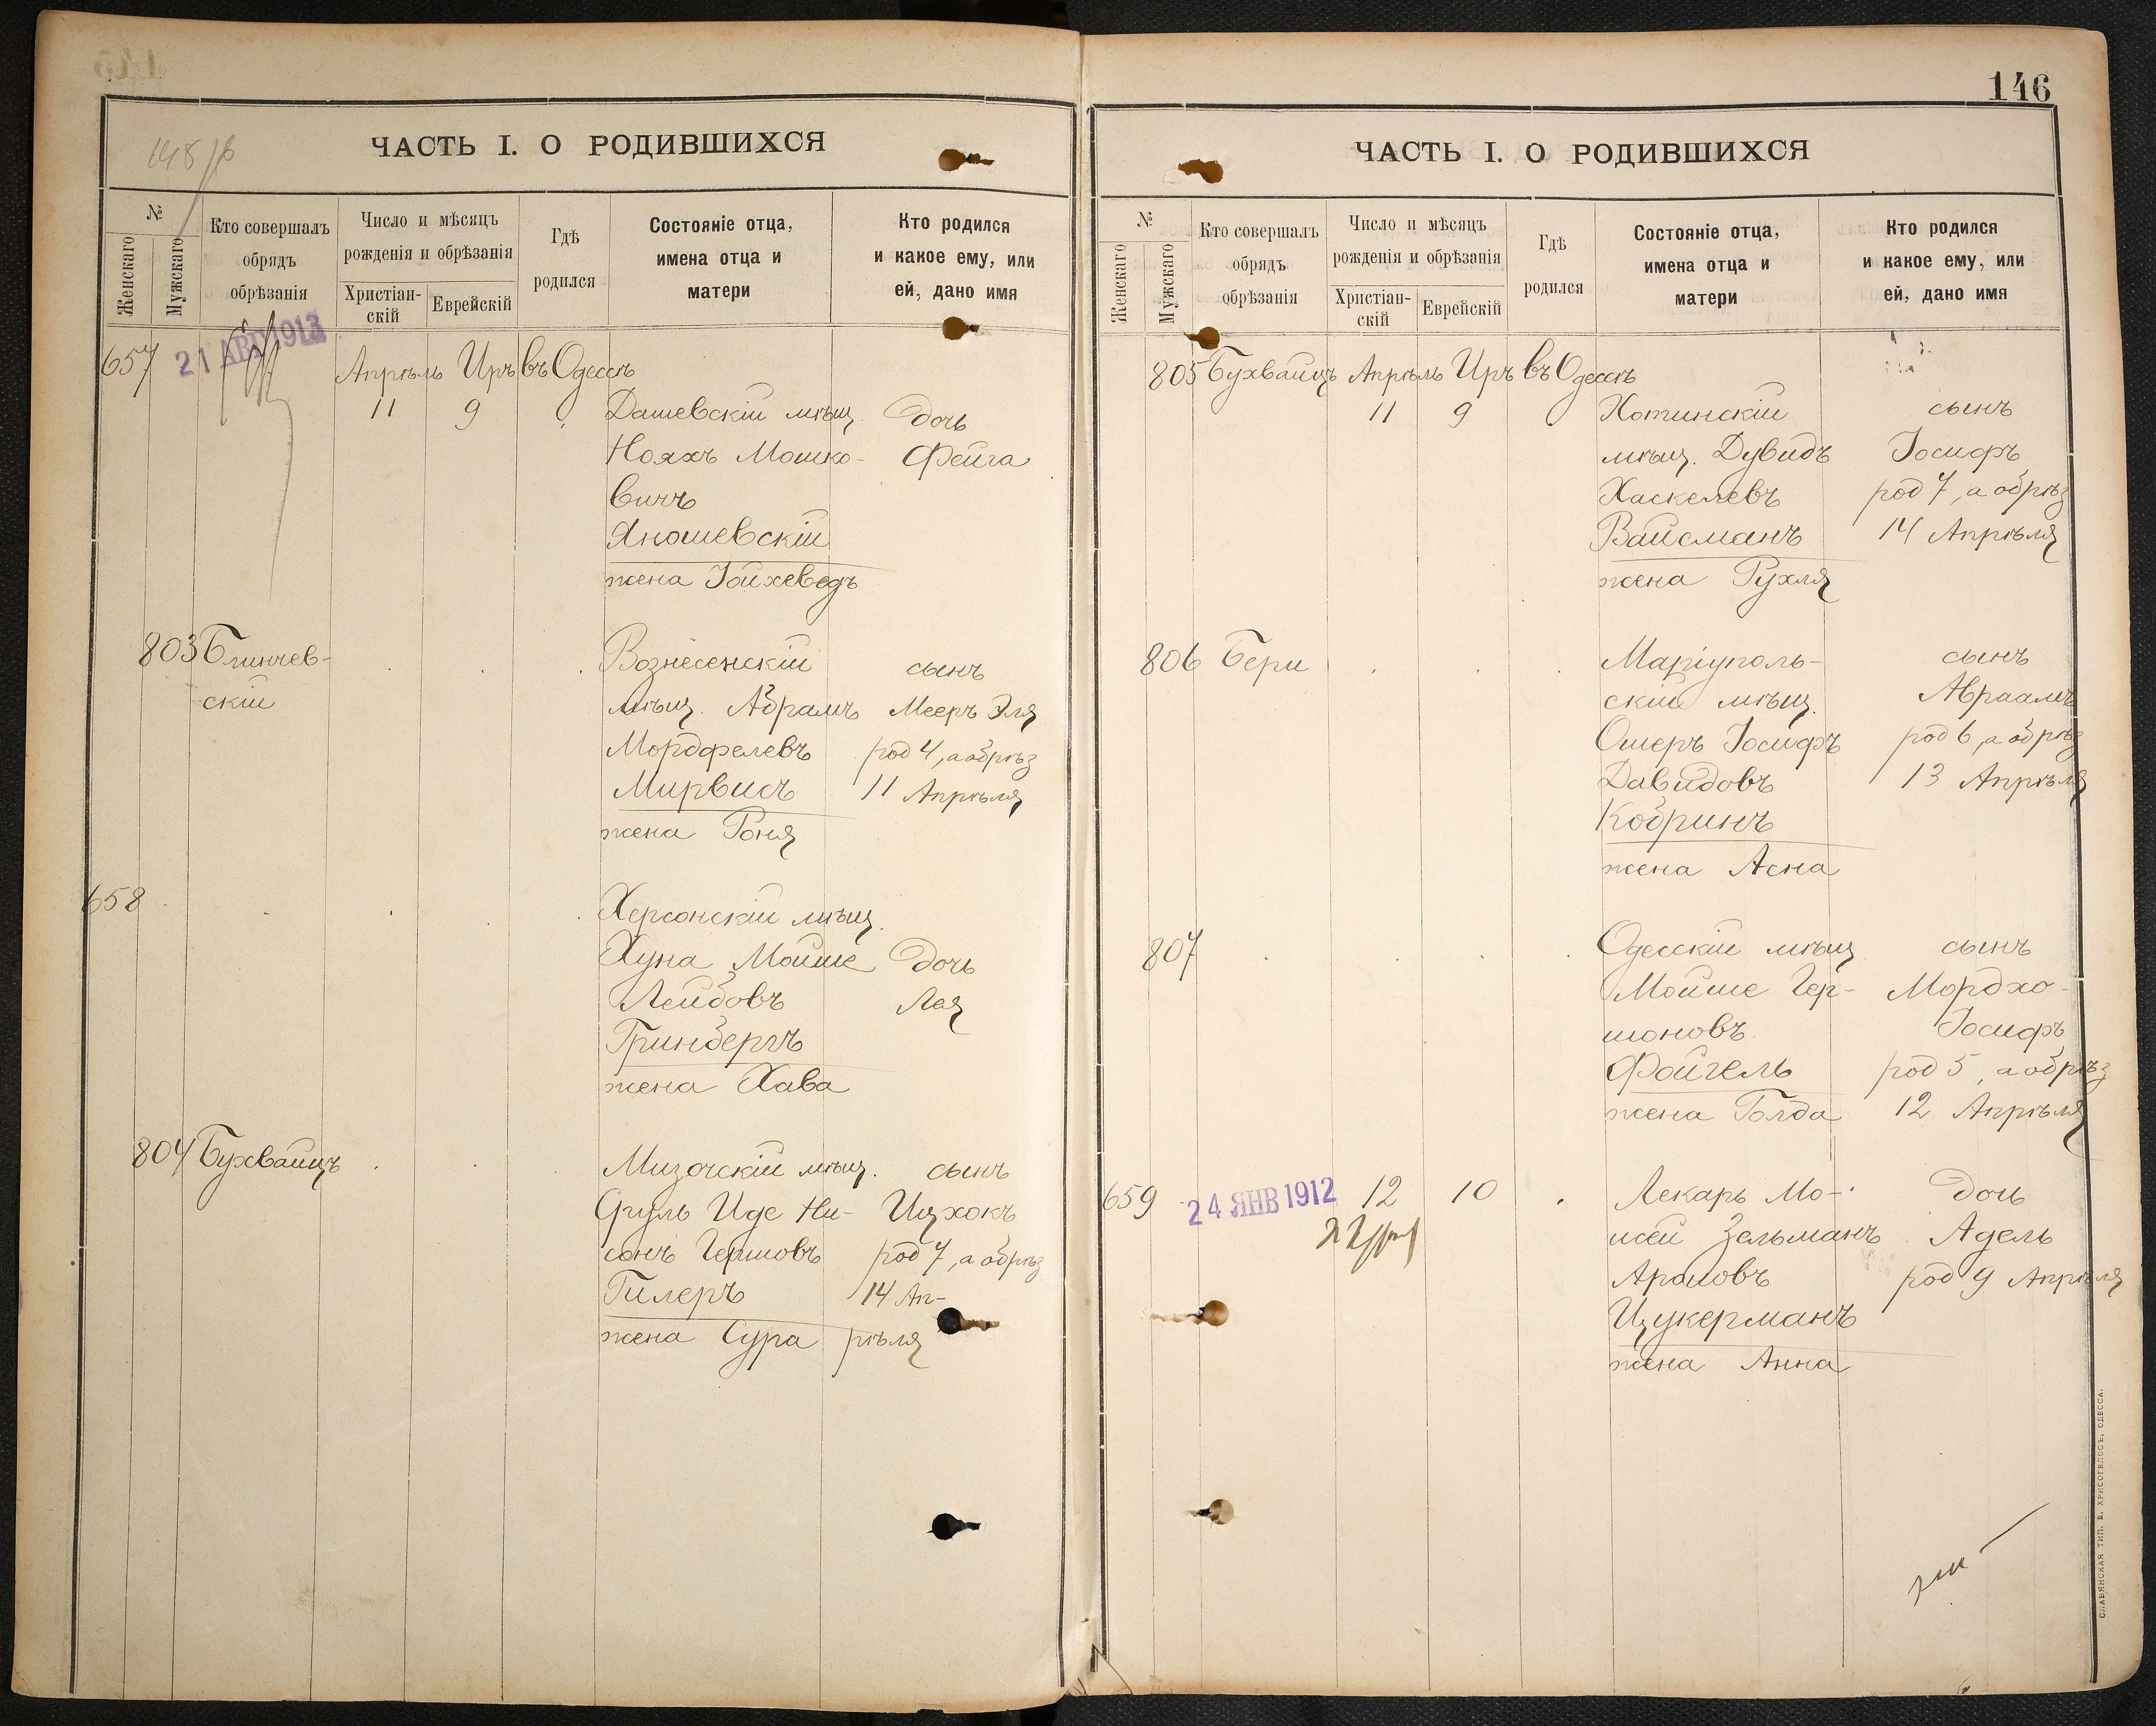 ЧАСТЬ I. О РОДИВШИХСЯ
№
Женскаго
Мужскаго
Кто совершалъ
обрядъ
обрѣзанія
Число и мѣсяцъ
рожденія и обрѣзанія
Христіан-
скій
Еврейскій
Гдѣ
родился
Состояніе отца,
имена отца и
матери
Кто родился
и какое ему, или
ей, дано имя
657
21 АВГ 1913
Апрѣль Иръ въ Одессѣ
11 9
Дашевскій мѣщ. дочь
Нояхъ Мошко- Фейга
вичъ
Яношевскій
жена Іойхеведъ
803 Блинчев- Вознесенскій сынъ
скій мѣщ. Абрамъ Мееръ Эля
Мордфелевъ род 4, а обрѣз
Мирвисъ 11 Апрѣля
жена Роня
658 Херсонскій мѣщ.
Хуна Мойше дочь
Лейбовъ Лея
Гринбергъ
жена Хава
804 Бухвайцъ Мизочскій мѣщ. сынъ
Сруль Иде Ни- Ицхокъ
сонъ Гершовъ род 7, а обрѣз
Гилеръ 14 Ап-
жена Сура рѣля
146
ЧАСТЬ I. О РОДИВШИХСЯ
№
Женскаго
Мужскаго
Кто совершалъ
обрядъ
обрѣзанія
Число и мѣсяцъ
рожденія и обрѣзанія
Христіан-
скій
Еврейскій
Гдѣ
родился
Состояніе отца,
имена отца и
матери
Кто родился
и какое ему, или
ей, дано имя
805 Бухвайцъ Апрѣль Иръ въ Одессѣ
11 9 Хотинскій сынъ
мѣщ. Дувидъ Іосифъ
Хаскелевъ род 7, а обрѣз
Вайсманъ 14 Апрѣля
жена Рухля
806 Бери Маріуполь- сынъ
скій мѣщ. Авраамъ
Ошеръ Іосифъ род 6, а обрѣз
Давидовъ 13 Апрѣля
Кобринъ
жена Асна
807 Одесскій мѣщ сынъ
Мойше Гер- Мордхо-
шоновъ Іосифъ
Фойгель род 5, а обрѣз
жена Голда 12 Апрѣля
659 24 ЯНВ 1912 12 10 Лекарь Мо- дочь
исей Зельманъ Адель
Ароновъ род 9 Апрѣля
Цукерманъ
жена Анна
СЛАВЯНСКАЯ ТИП. Е. ХРИСОГЕЛОСЪ, ОДЕССА.